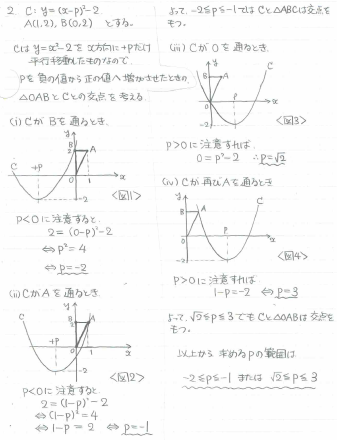 2. C: y=(x-p)²-2
A(1,2), B(0,2) とする。
Cは y=x²-2を x方向に+Pだけ
平行移動したものなので
Pを負の値から正の値へ増加させたときの
△OABとCとの交点を考える
(i) CがBを通るとき
y
C
+P
B
2
A
O
1
x
-2
<図1>
P<0に注意すると
2=(0-P)²-2
⇔ P²=4
⇔ P=-2
(ii) CがAを通るとき
y
C
+P
B
2
A
O
1
x
-2
<図2>
P<0に注意すると
2=(1-P)²-2
⇔ (1-P)²=4
⇔ 1-P=2 ⇔ P=-1
よって、-2≦P≦-1ではCと△ABCは交点を
もつ。
(iii) CがOを通るとき
y
B
A
C
O
P
x
-2
<図3>
P>0に注意すれば
0=P²-2 ∴P=√2
(iv) Cが再びAを通るとき
y
B
A
C
O
P
x
-2
<図4>
P>0に注意すれば
1-P=-2 ⇔ P=3
よって、√2≦P≦3でもCと△OABは交点を
もつ。
以上から 求めるPの範囲は
-2≦P≦-1 または √2≦P≦3